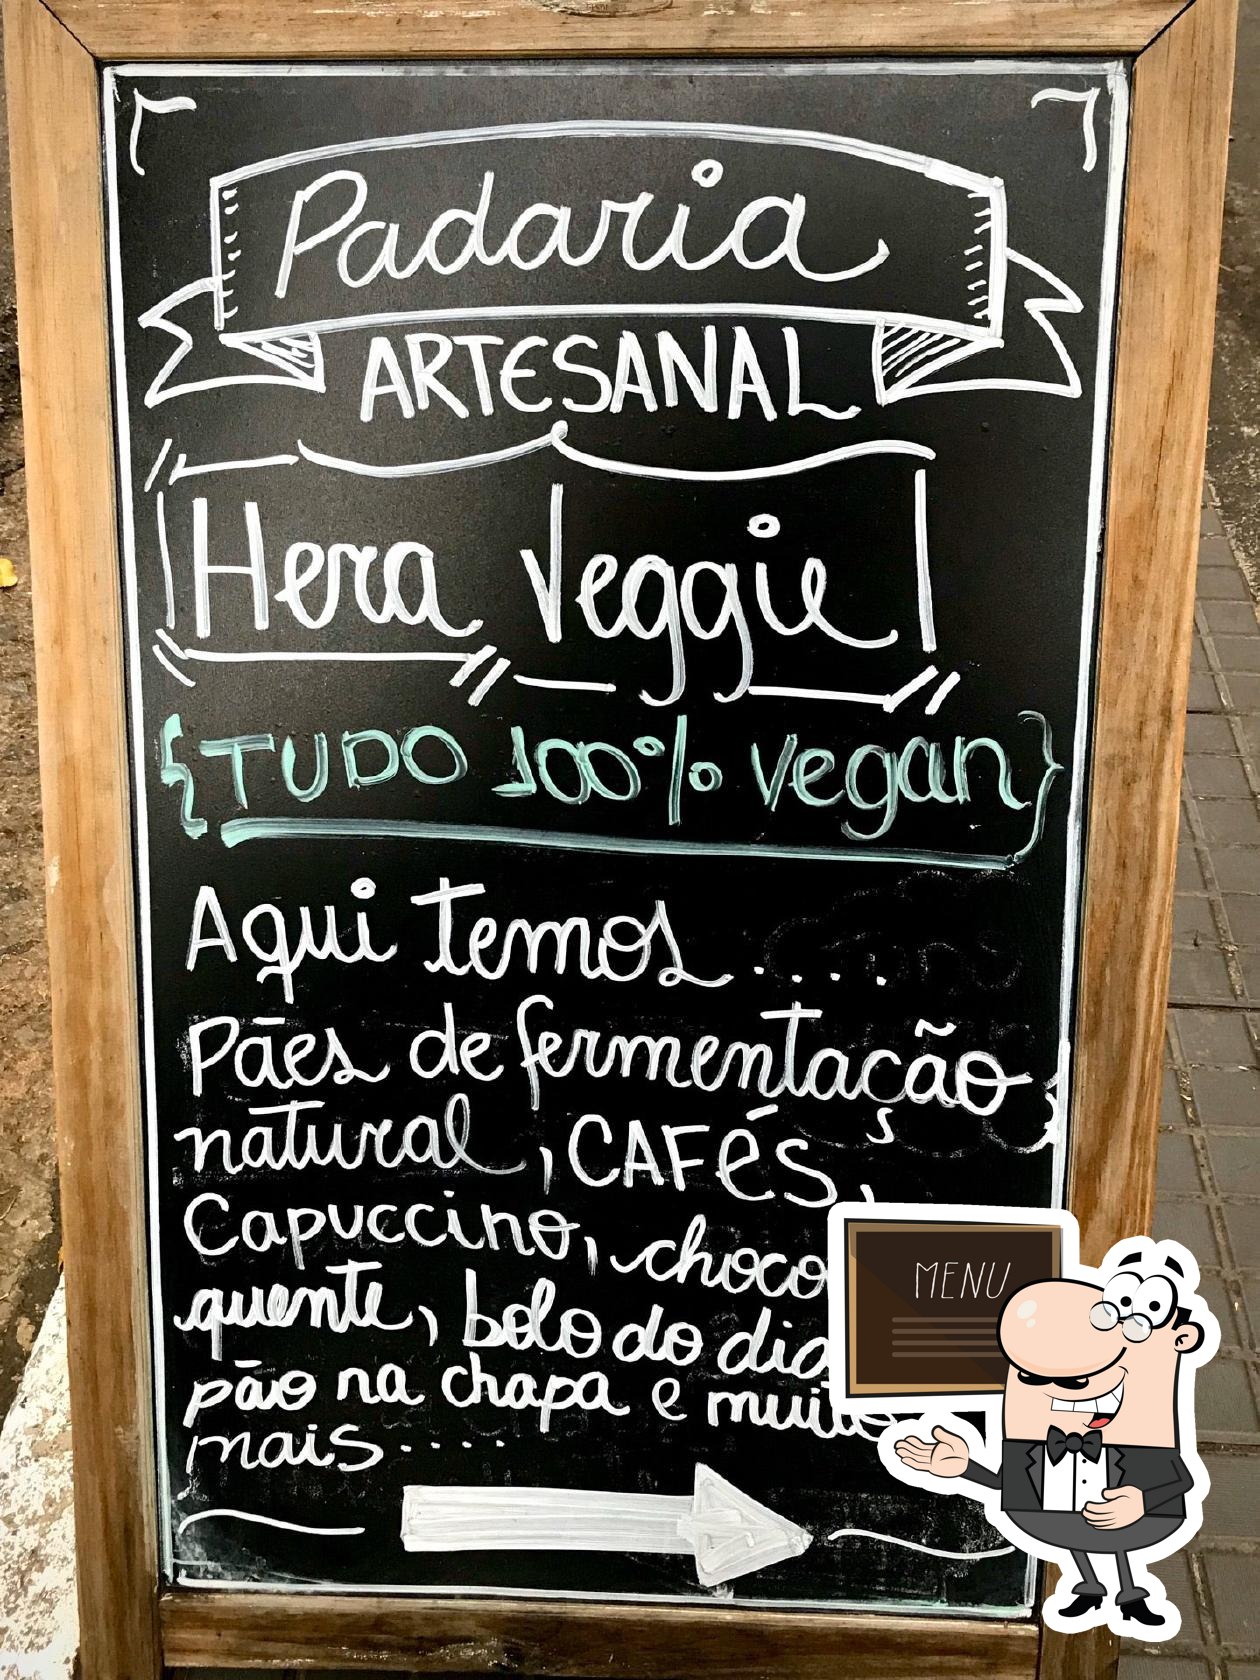 Padaria
ARTESANAL
Hera Veggie
{TUDO 100% vegan}
Aqui temos....
Pães de fermentação
natural, CAFÉS,
Capuccino, choco
quente, bolo do dia
pão na chapa e muito
mais....
MENU